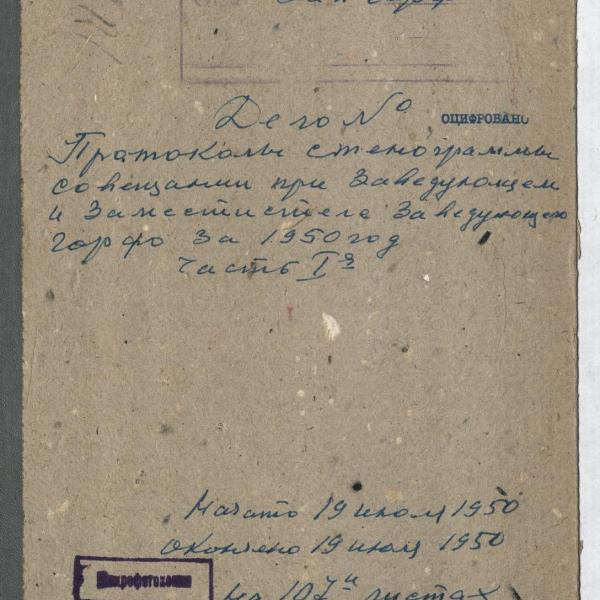 Дело №
ОЦИФРОВАНО
Протоколы стенограммы
совещании при Заведующем
и Заместителе Заведующего
Горфо за 1950 год
Часть I я
Начато 19 июля 1950
Окончено 19 июля 1950
Микрофотокопия
На 107 и листах